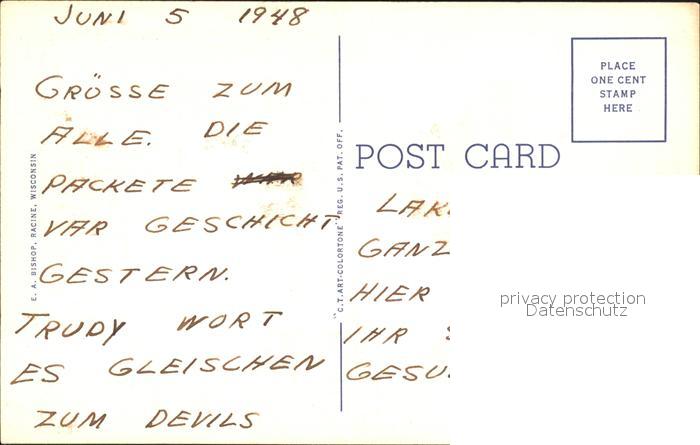 JUNI 5 1948
GRÖSSE ZUM
ALLE. DIE
PACKETE
VAR GESCHICHT
GESTERN.
TRUDY WORT
ES GLEISCHEN
ZUM DEVILS
E. A. BISHOP, RACINE, WISCONSIN
"C.T. ART-COLORTONE" REG. U.S. PAT. OFF.
PLACE
ONE CENT
STAMP
HERE
POST CARD
LAK
GANZ
HIER
IHR
GESU
privacy protection
Datenschutz